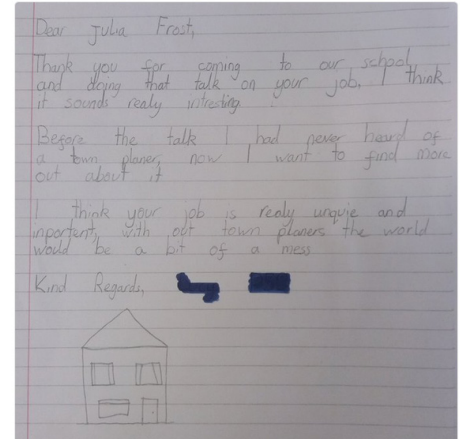 Dear Julia Frost,
Thank you for coming to our school
and doing that talk on your job. I think
it sounds realy intresting
Before the talk I had never heard of
a town planer, now I want to find more
out about it
I think your job is realy unquie and
inportent, with out town planers the world
would be a bit of a mess
Kind Regards,